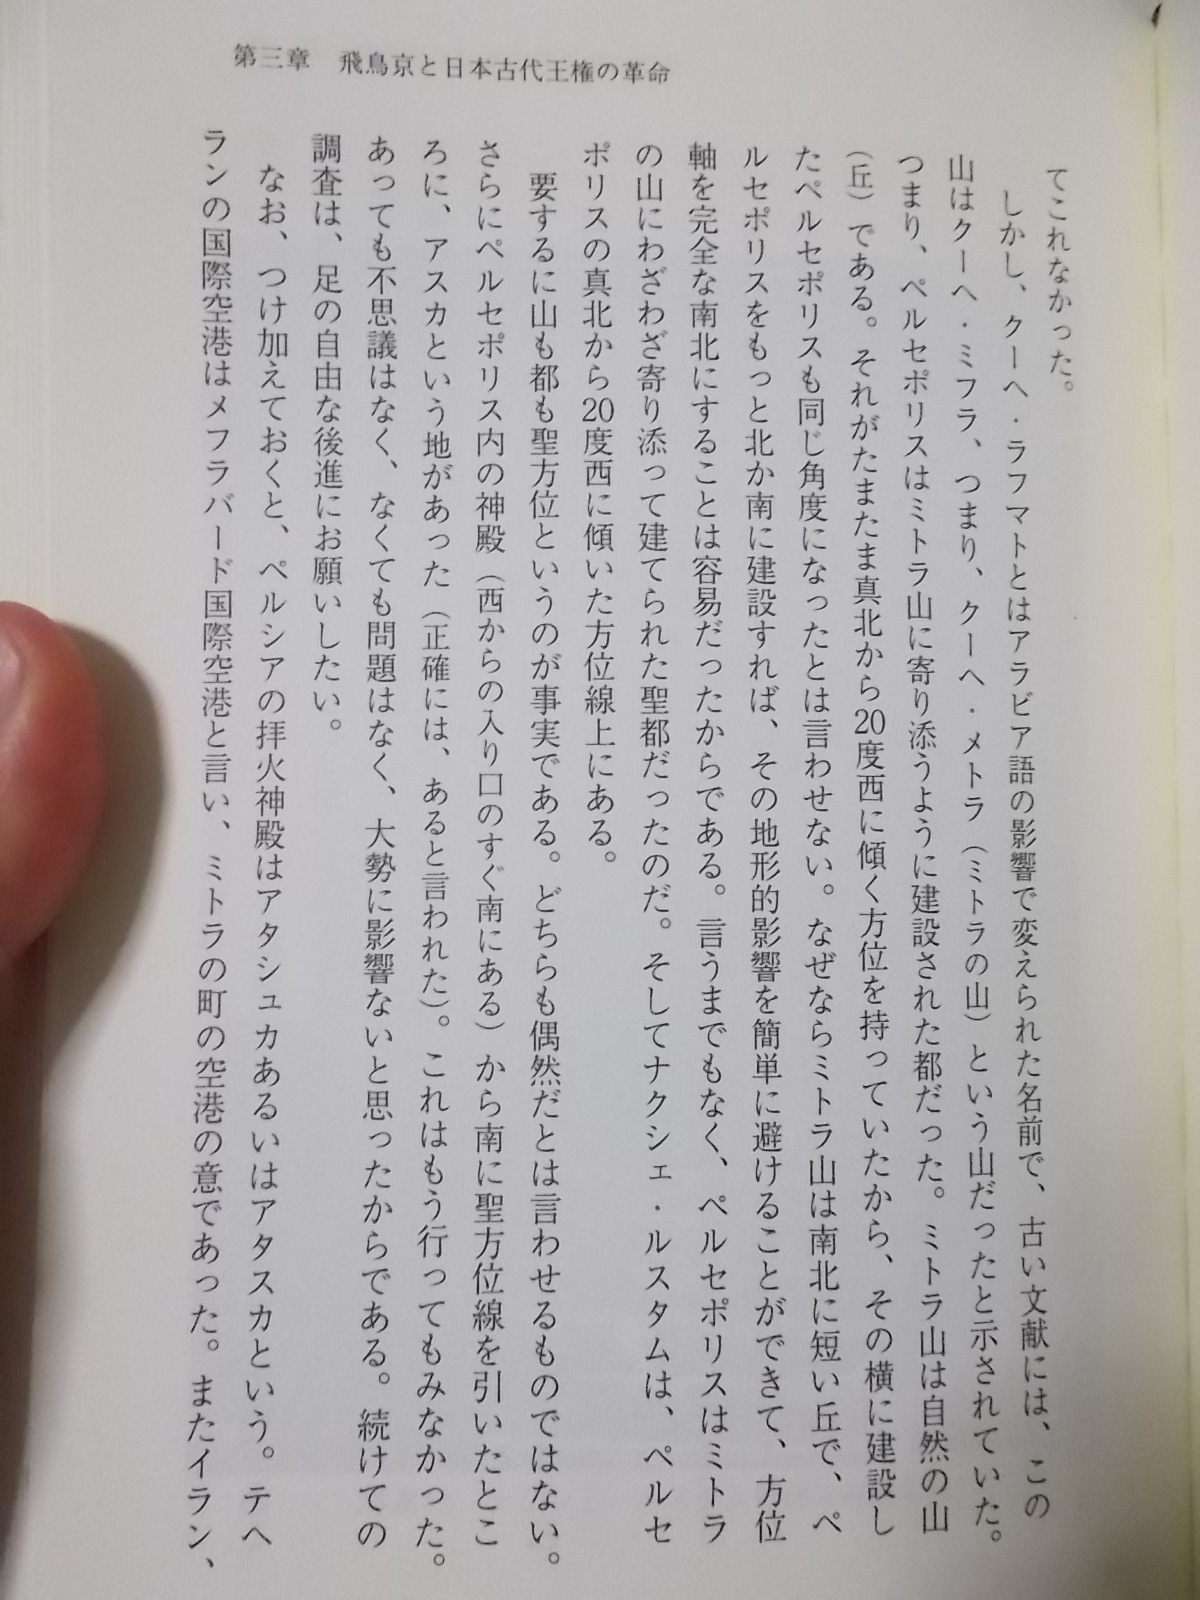 第三章　飛鳥京と日本古代王権の革命
てこれなかった。
しかし、クーヘ・ラフマトとはアラビア語の影響で変えられた名前で、古い文献には、この
山はクーヘ・ミフラ、つまり、クーヘ・メトラ（ミトラの山）という山だったと示されていた。
つまり、ペルセポリスはミトラ山に寄り添うように建設された都だった。ミトラ山は自然の山
（丘）である。それがたまたま真北から20度西に傾く方位を持っていたから、その横に建設し
たペルセポリスも同じ角度になったとは言わせない。なぜならミトラ山は南北に短い丘で、ペ
ルセポリスをもっと北か南に建設すれば、その地形的影響を簡単に避けることができて、方位
軸を完全な南北にすることは容易だったからである。言うまでもなく、ペルセポリスはミトラ
の山にわざわざ寄り添って建てられた聖都だったのだ。そしてナクシェ・ルスタムは、ペルセ
ポリスの真北から20度西に傾いた方位線上にある。
要するに山も都も聖方位というのが事実である。どちらも偶然だとは言わせるものではない。
さらにペルセポリス内の神殿（西からの入り口のすぐ南にある）から南に聖方位線を引いたとこ
ろに、アスカという地があった（正確には、あると言われた）。これはもう行ってもみなかった。
あっても不思議はなく、なくても問題はなく、大勢に影響ないと思ったからである。続けての
調査は、足の自由な後進にお願いしたい。
なお、つけ加えておくと、ペルシアの拝火神殿はアタシュカあるいはアタスカという。テヘ
ランの国際空港はメフラバード国際空港と言い、ミトラの町の空港の意であった。またイラン、